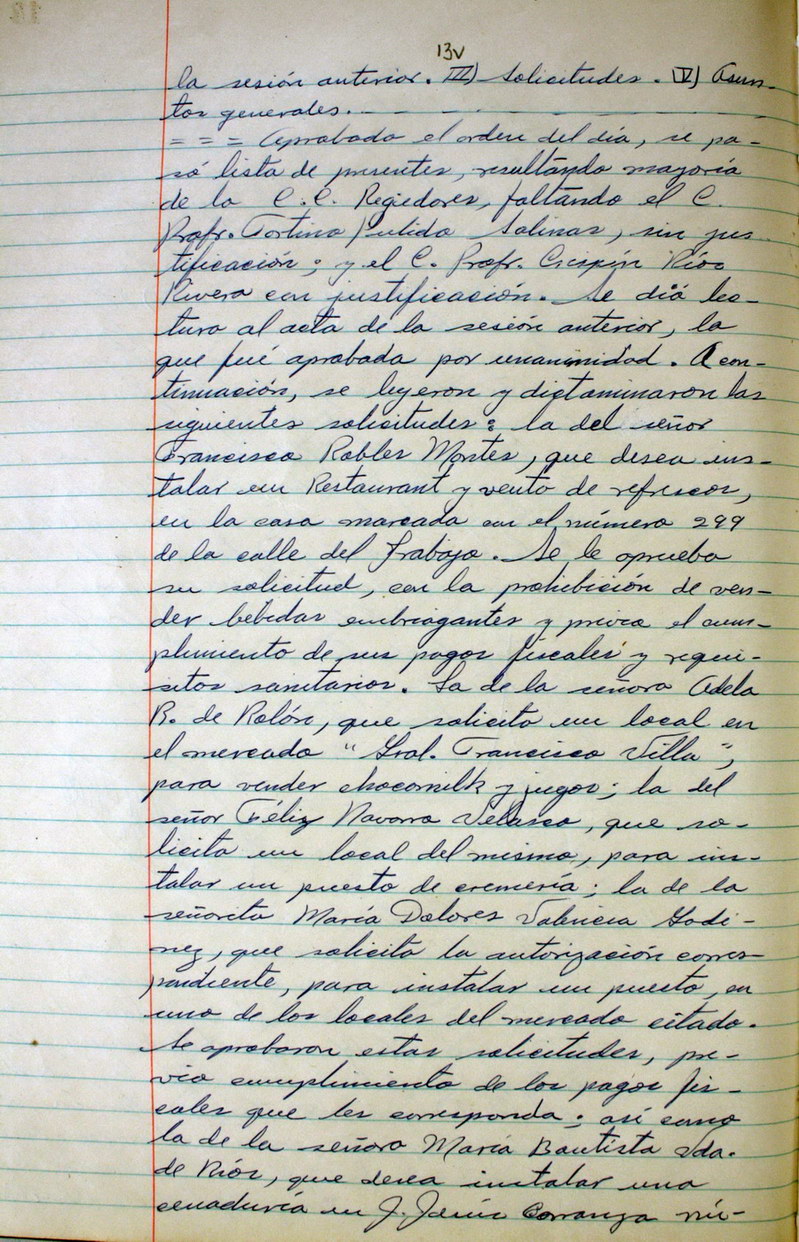 13v
la sesión anterior. III) Solicitudes. V) Asun-
tos generales.
= = = Aprobado el orden del día, se pa-
só lista de presentes, resultando mayoría
de la C.C. Regidores, faltando el C.
Profr. Tortino Pulido Salinas, sin jus-
tificación; y el C. Profr. Crispín Ríos
Rivera con justificación. Se dió lec-
tura al acta de la sesión anterior, la
que fué aprobada por unanimidad. A con-
tinuación, se leyeron y dictaminaron las
siguientes solicitudes: la del señor
Francisco Robles Montes, que desea ins-
talar un Restaurant y venta de refrescos,
en la casa marcada con el número 299
de la calle del Trabajo. Se le aprueba
su solicitud, con la prohibición de ven-
der bebidas embriagantes y previa el cum-
plimiento de sus pagos fiscales y requi-
sitos sanitarios. La de la señora Adela
R. de Rolón, que solicita un local en
el mercado "Gral. Francisco Villa",
para vender chocomilk y jugos; la del
señor Féliz Navarro Velasco, que so-
licita un local del mismo, para ins-
talar un puesto de cremería; la de la
señorita María Dolores Valencia Godí-
nez, que solicita la autorización corres-
pondiente, para instalar un puesto, en
uno de los locales del mercado citado.
Se aprobaron estas solicitudes, pre-
vio cumplimiento de los pagos fis-
cales que les corresponda; así como
la de la señora María Bautista Vda.
de Ríos, que desea instalar una
cenaduría en J. Jesús Carranza nú-